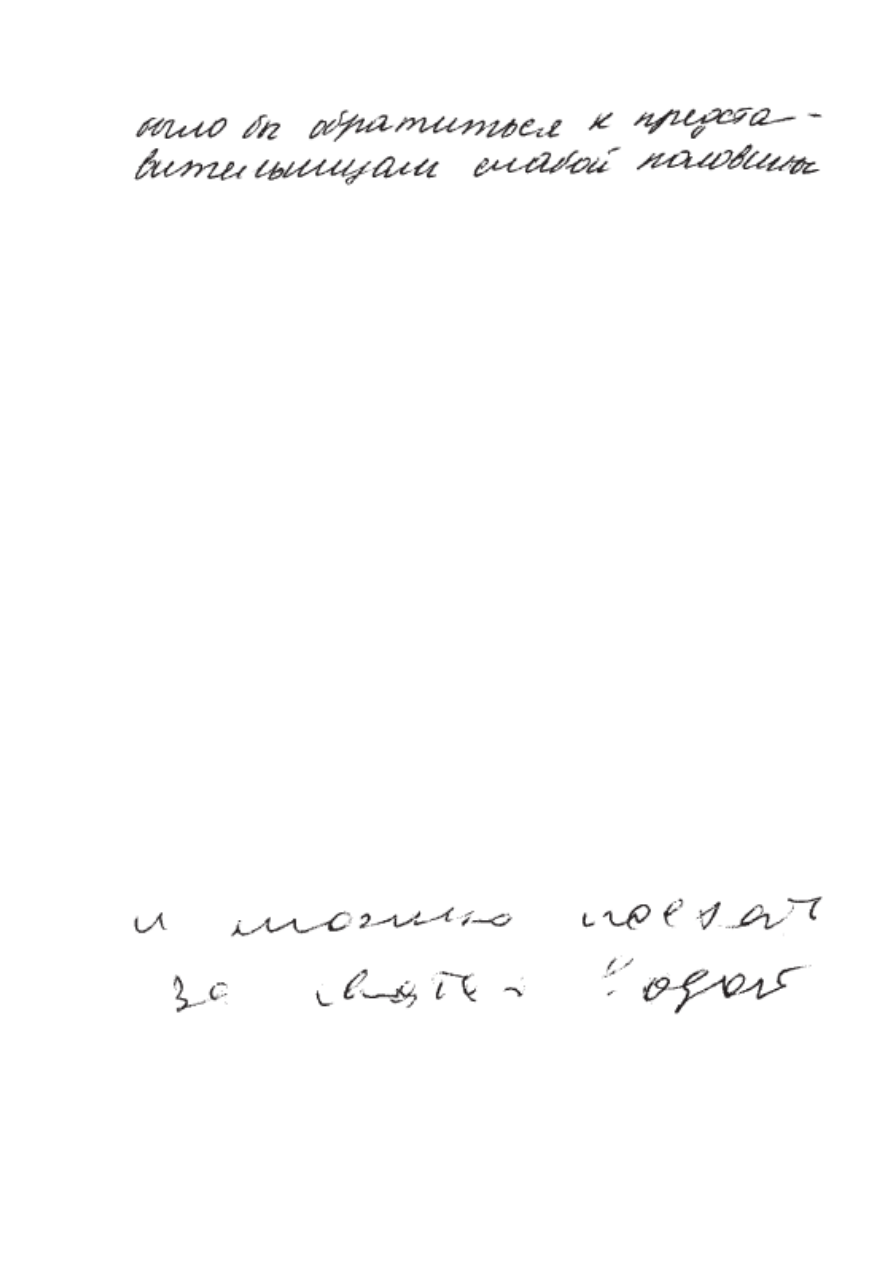 было бы обратиться к предста-
вительницам слабой половины
и можно поехат
за святой водой